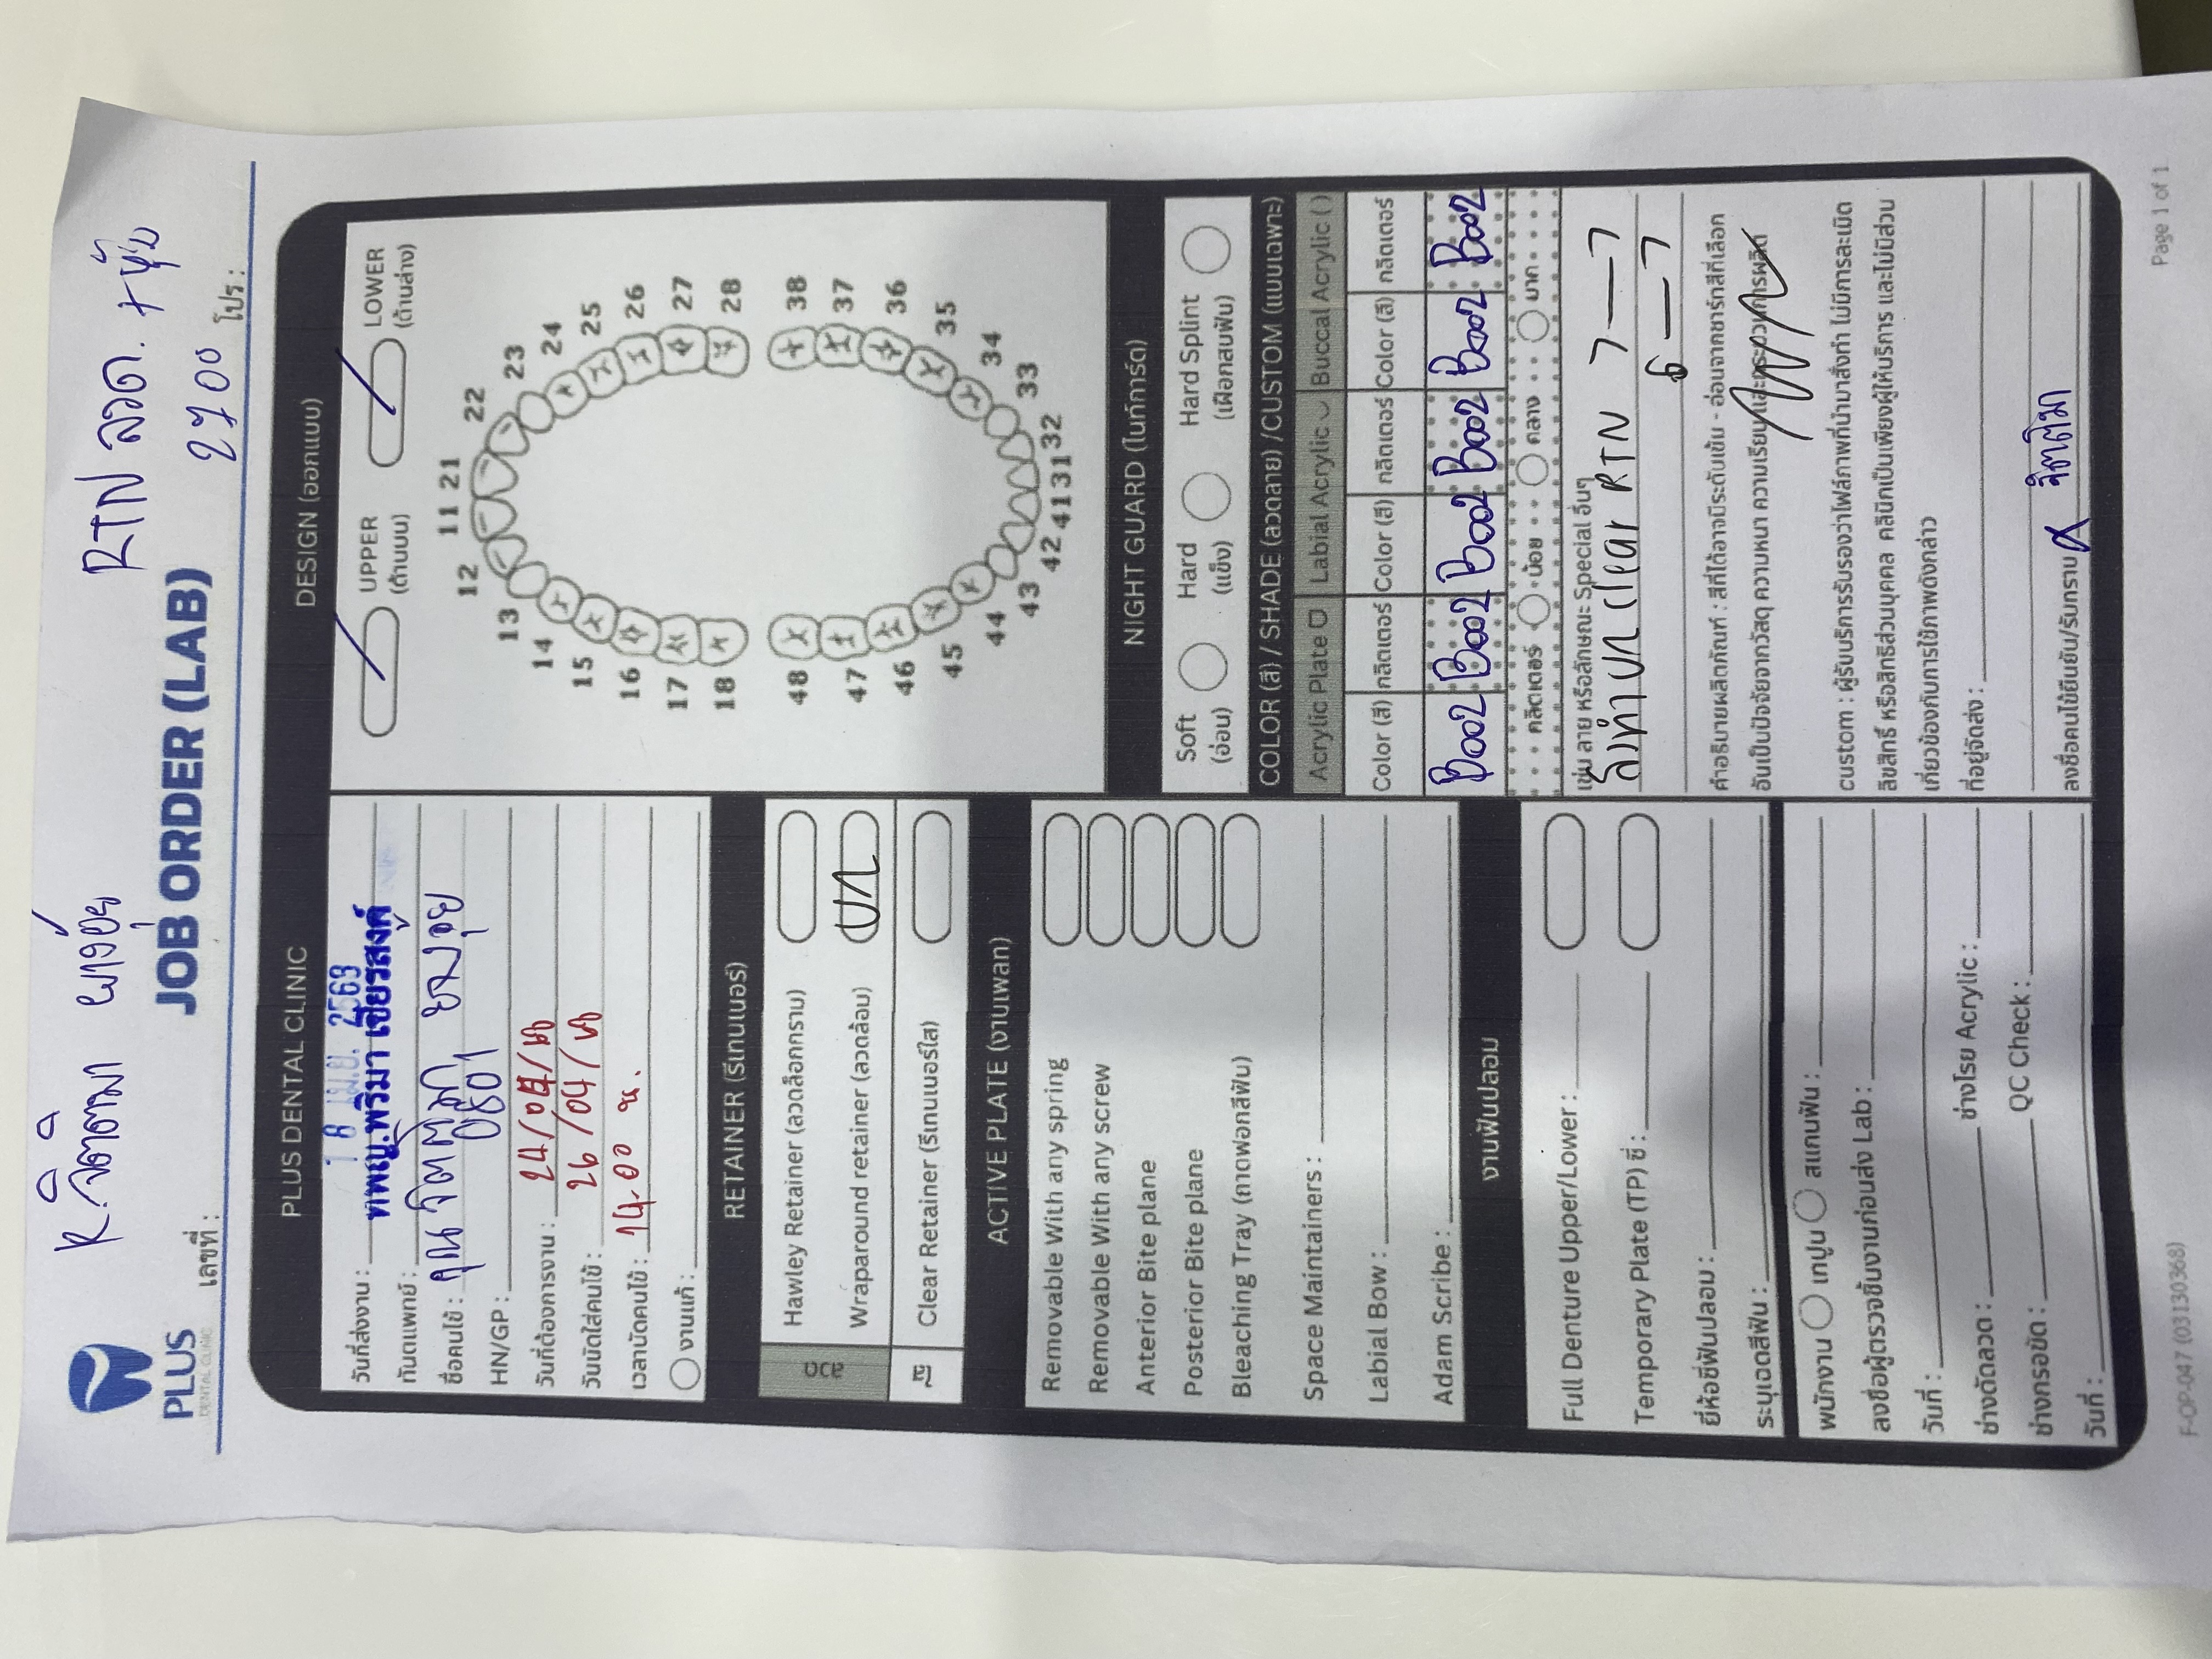 K.จิตติมา ยางอุ้ย
RTN ลวด. + หุ้ม
2700
PLUS
DENTAL CLINIC
JOB ORDER (LAB)
เลขที่ :
โปร :
PLUS DENTAL CLINIC
วันที่ส่งงาน : 18 เม.ย. 2569
ทันตแพทย์ : ทพญ.พริมา เชียรสงค์
ชื่อคนไข้ : คุณจิตติมา ยางอุ้ย
HN/GP : 0801
วันที่ต้องการงาน : 24/04/
วันนัดใส่คนไข้ : 26/04/
เวลานัดคนไข้ : 14.00 น.
งานแก้ :
RETAINER (รีเทนเนอร์)
ลวด
Hawley Retainer (ลวดล็อกกราม)
Wraparound retainer (ลวดล้อม) บล
ใส
Clear Retainer (รีเทนเนอร์ใส)
ACTIVE PLATE (งานเพลท)
Removable With any spring
Removable With any screw
Anterior Bite plane
Posterior Bite plane
Bleaching Tray (ถาดฟอกสีฟัน)
Space Maintainers :
Labial Bow :
Adam Scribe :
งานฟันปลอม
Full Denture Upper/Lower :
Temporary Plate (TP) ซี่ :
ยี่ห้อซี่ฟันปลอม :
ระบุเฉดสีฟัน :
พนักงาน เทปูน สแกนฟัน :
ลงชื่อผู้ตรวจชิ้นงานก่อนส่ง Lab :
วันที่ :
ช่างดัดลวด : ช่างโรย Acrylic :
ช่างกรอขัด : QC Check :
วันที่ :
DESIGN (ออกแบบ)
UPPER LOWER
(ด้านบน) (ด้านล่าง)
11 21
12 22
13 23
14 24
15 25
16 26
17 27
18 28
48 38
47 37
46 36
45 35
44 34
43 33
42 41 31 32
NIGHT GUARD (ไนท์การ์ด)
Soft Hard Hard Splint
(อ่อน) (แข็ง) (เฝือกสบฟัน)
COLOR (สี) / SHADE (ลวดลาย) /CUSTOM (แบบเฉพาะ)
Acrylic Plate Labial Acrylic Buccal Acrylic ( )
Color (สี) กลิตเตอร์ Color (สี) กลิตเตอร์ Color (สี) กลิตเตอร์
B002 B002 B002 B002 B002 B002
กลิตเตอร์ น้อย กลาง มาก
เช่น ลาย หรือลักษณะ Special อื่นๆ
สั่งทำ บล clear RTN 7—7
6—7
คำอธิบายผลิตภัณฑ์ : สีที่ได้อาจมีระดับเข้ม - อ่อนจากชาร์ทสีที่เลือก
อันเป็นปัจจัยจากวัสดุ ความหนา ความเรียบ และกระบวนการผลิต
custom : ผู้รับบริการรับรองว่าไฟล์ภาพที่นำมาสั่งทำ ไม่มีการละเมิด
ลิขสิทธิ์ หรือสิทธิส่วนบุคคล คลินิกเป็นเพียงผู้ให้บริการ และไม่มีส่วน
เกี่ยวข้องกับการใช้ภาพดังกล่าว
ที่อยู่จัดส่ง :
ลงชื่อคนไข้ยืนยัน/รับทราบ x จิตติมา
F-OP-047 (03130368)
Page 1 of 1